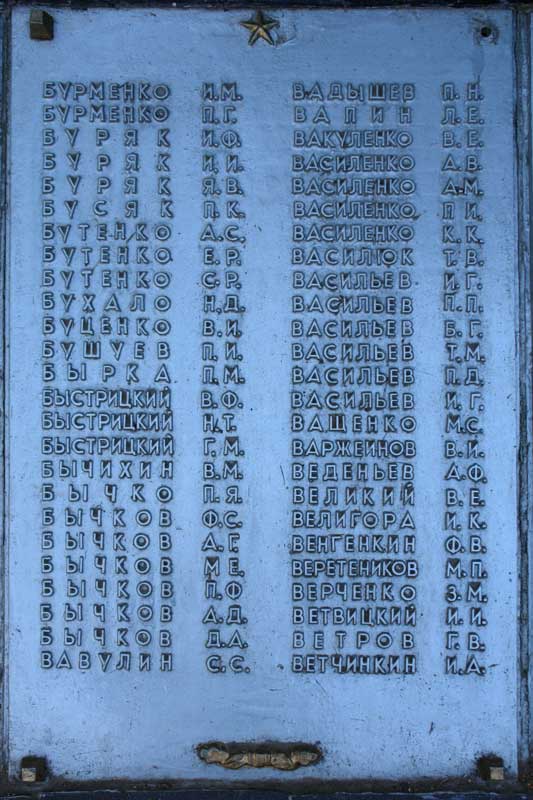 БУРМЕНКО И.М.
БУРМЕНКО П.Г.
БУРЯК И.Ф.
БУРЯК И.И.
БУРЯК Я.В.
БУСЯК П.К.
БУТЕНКО А.С.
БУТЕНКО Е.Р.
БУТЕНКО С.Р.
БУХАЛО Н.Д.
БУЦЕНКО В.И.
БУШУЕВ П.И.
БЫРКА П.М.
БЫСТРИЦКИЙ В.Ф.
БЫСТРИЦКИЙ Н.Т.
БЫСТРИЦКИЙ Г.М.
БЫЧИХИН В.М.
БЫЧКО П.Я.
БЫЧКОВ Ф.С.
БЫЧКОВ А.Г.
БЫЧКОВ М.Е.
БЫЧКОВ П.Ф
БЫЧКОВ А.Д.
БЫЧКОВ Д.А.
ВАВУЛИН С.С.
ВАДЫШЕВ П.Н.
ВАПИН Л.Е.
ВАКУЛЕНКО В.Е.
ВАСИЛЕНКО А.В.
ВАСИЛЕНКО А.М.
ВАСИЛЕНКО П.И.
ВАСИЛЕНКО К.К.
ВАСИЛЮК Т.В.
ВАСИЛЬЕВ И.Г.
ВАСИЛЬЕВ П.П.
ВАСИЛЬЕВ Б.Г.
ВАСИЛЬЕВ Т.М.
ВАСИЛЬЕВ П.Д.
ВАСИЛЬЕВ И.Г.
ВАЩЕНКО М.С.
ВАРЖЕИНОВ В.И.
ВЕДЕНЬЕВ А.Ф.
ВЕЛИКИЙ В.Е.
ВЕЛИГОРА И.К.
ВЕНГЕНКИН Ф.В.
ВЕРЕТЕНИКОВ М.П.
ВЕРЧЕНКО З.М.
ВЕТВИЦКИЙ И.И.
ВЕТРОВ Г.В.
ВЕТЧИНКИН И.А.